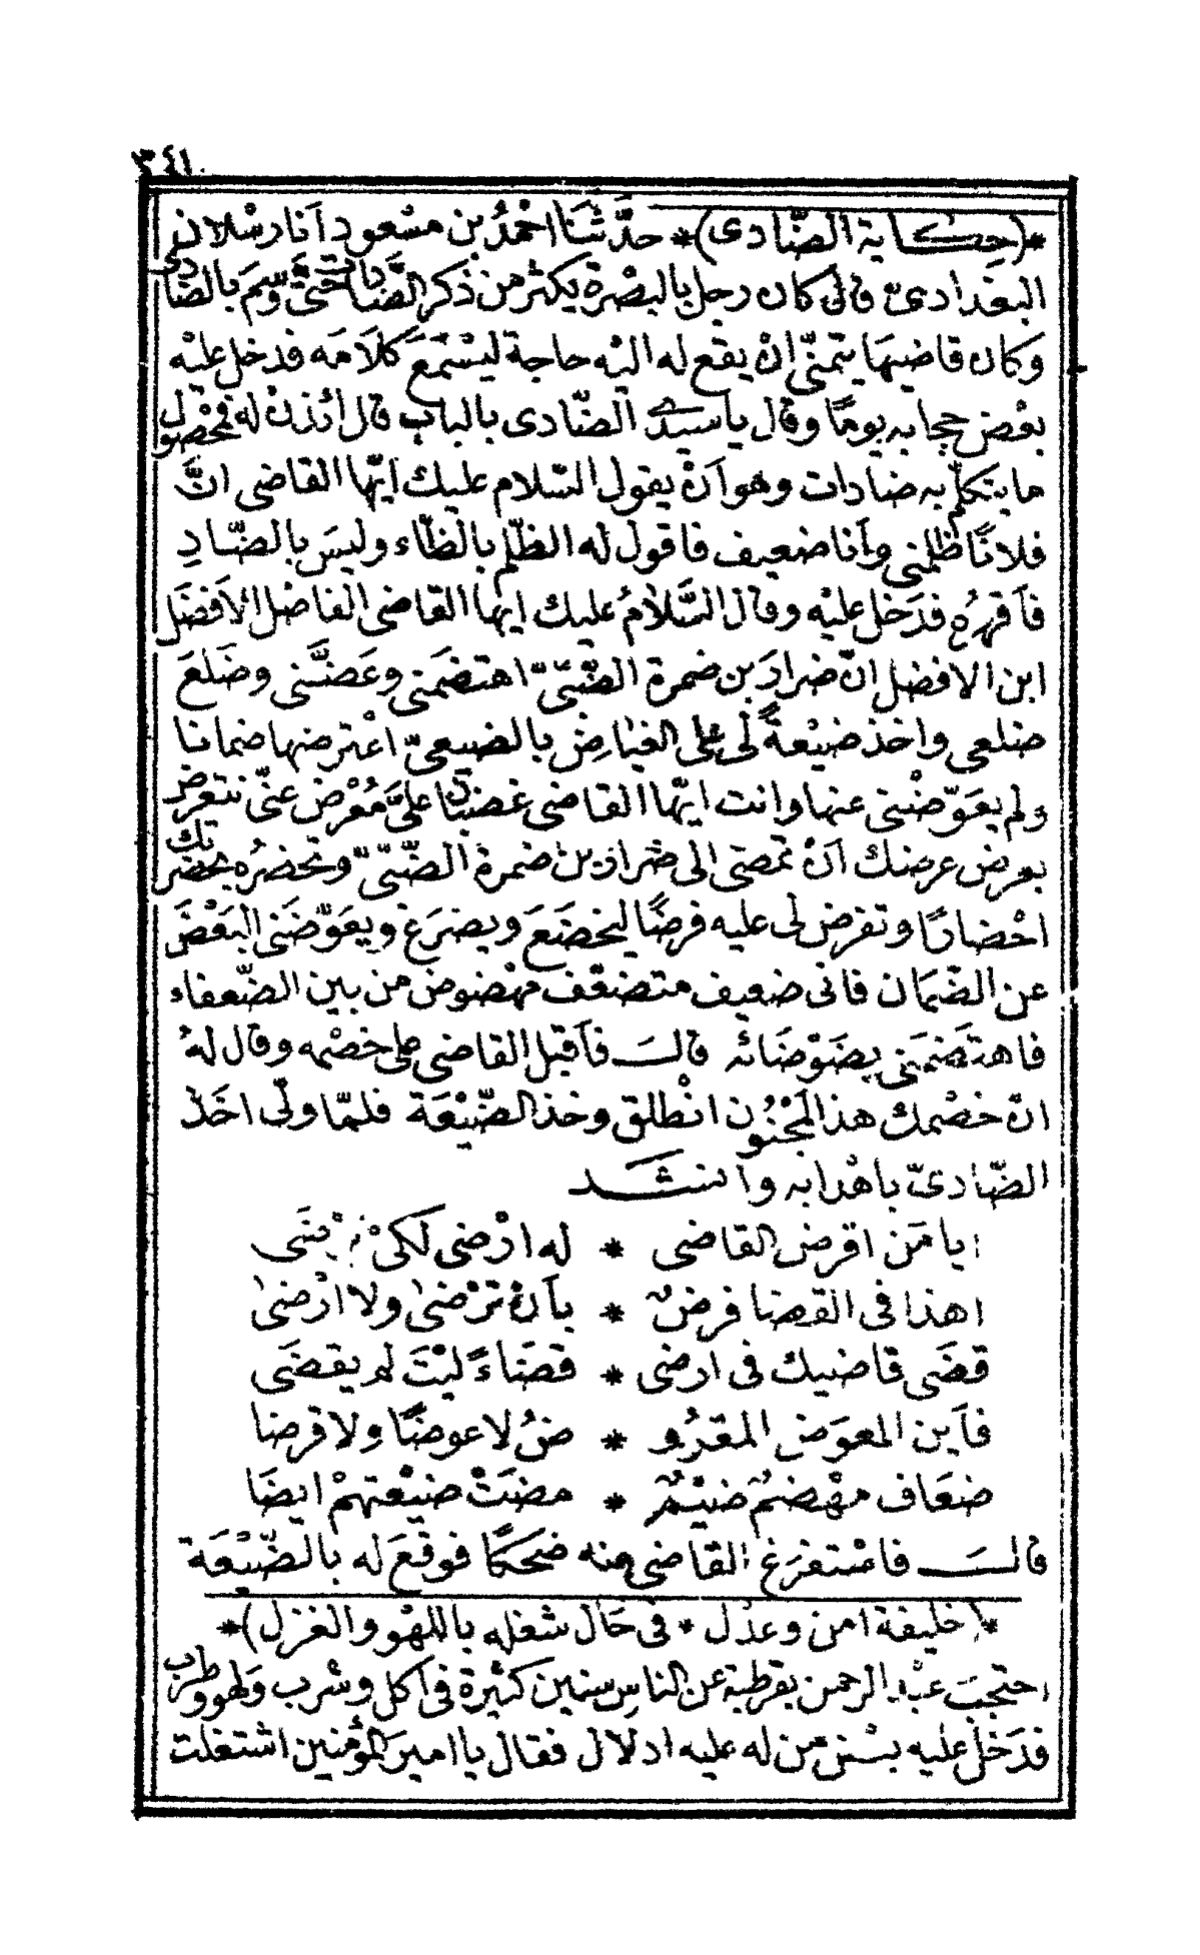 ٣٤١
*(حِكاية الضّادى)* حدَّثَنا احْمَدُ بن مسْعود أنا رسْلان
البغدادىّ قال كان رجل بالبصْرة يكثر من ذكر الضَّادات حتىَّ وسّم بالضادى
وكان قاضيها يتمنّى انْ يقع له اليْه حاجة ليسْتمعَ كلاَمَه فدخل عليْه
بعْض حجابه يومًا وقال يا سيّدى الضّادى بالباب قال ائذنْ له فمحْصول
ما يتكلّم به ضادات وهو أنْ يقول السّلام عليك أيّها القاضى انَّ
فلانًا ظلمنى وأنا ضعيف فاقول له الظلم بالظّاء وليسَ بالضّادِ
فأقهرُه فدَخل عليْه وقال السَّلامُ عليك ايّها القاضى الفاضل الأفضَل
ابن الافضل انّ ضرارَ بن ضمرة الضّبّىّ اهتضَمنى وعَضَّنى وضَلعَ
ضلعى واخذ ضيْعةً لى على الغياض بالضيعىّ اعْترضها ضمانا
ولم يعَوّضْنى عنها وانت ايّها القاضى غضبان علىَّ مُعْرض عنّى نتعرض
بعرض عرضك أنْ تمضى الى ضرار بن ضمرة الضّبّىّ وتحضرُه بحضرتك
احْضارًا وتفرض لى عليه فرضًا ليخضَعَ ويضرَع ويعَوّضَنى البَعْضَ
عن الضّمَان فانى ضعيف متضعّف مهْضوض من بين الضّعفاء
فاهتضَمَنى بضَوْضَائه قالــَـ فأقبَل القاضى على خصْمه وقال لهُ
انّ خصْمك هذا المَجْنُون انْطلق وخذ الضّيْعَة فلمّا ولّى اخَذ
الضّادىّ باهْدابه وأنشَــد
ايا مَن اقرض القاضى * له ارْضى لكىْ
اهذا فى القضا فرضٌ * بأنْ ترْضىٰ ولا ارْضىٰ
قضَى قاضيك فى ارضى * قضَاءً ليْتَ لم يقضَى
فأين المعوَض المقرُو * ضُ لا عوضًا ولا قرضا
ضعَاف مهْضمٌ ضيْمٌ * مضَتْ ضيْعتهمْ ايضَا
قالــَـ فاسْتفرَغ القاضى منه ضحَكًا فوقعَ له بالضّيْعَة
*(خليفة امن وعدل * فى حَال شغله باللهْو والغزل)*
احتجَبَ عبْد الرحمن بقرطبة عن الناس سنين كثيرة فى أكل وشرب ولهو وطرب
فدَخل عليه بعْض من له عليه ادلال فقال يا اميرَ المؤمنين اشتغلت